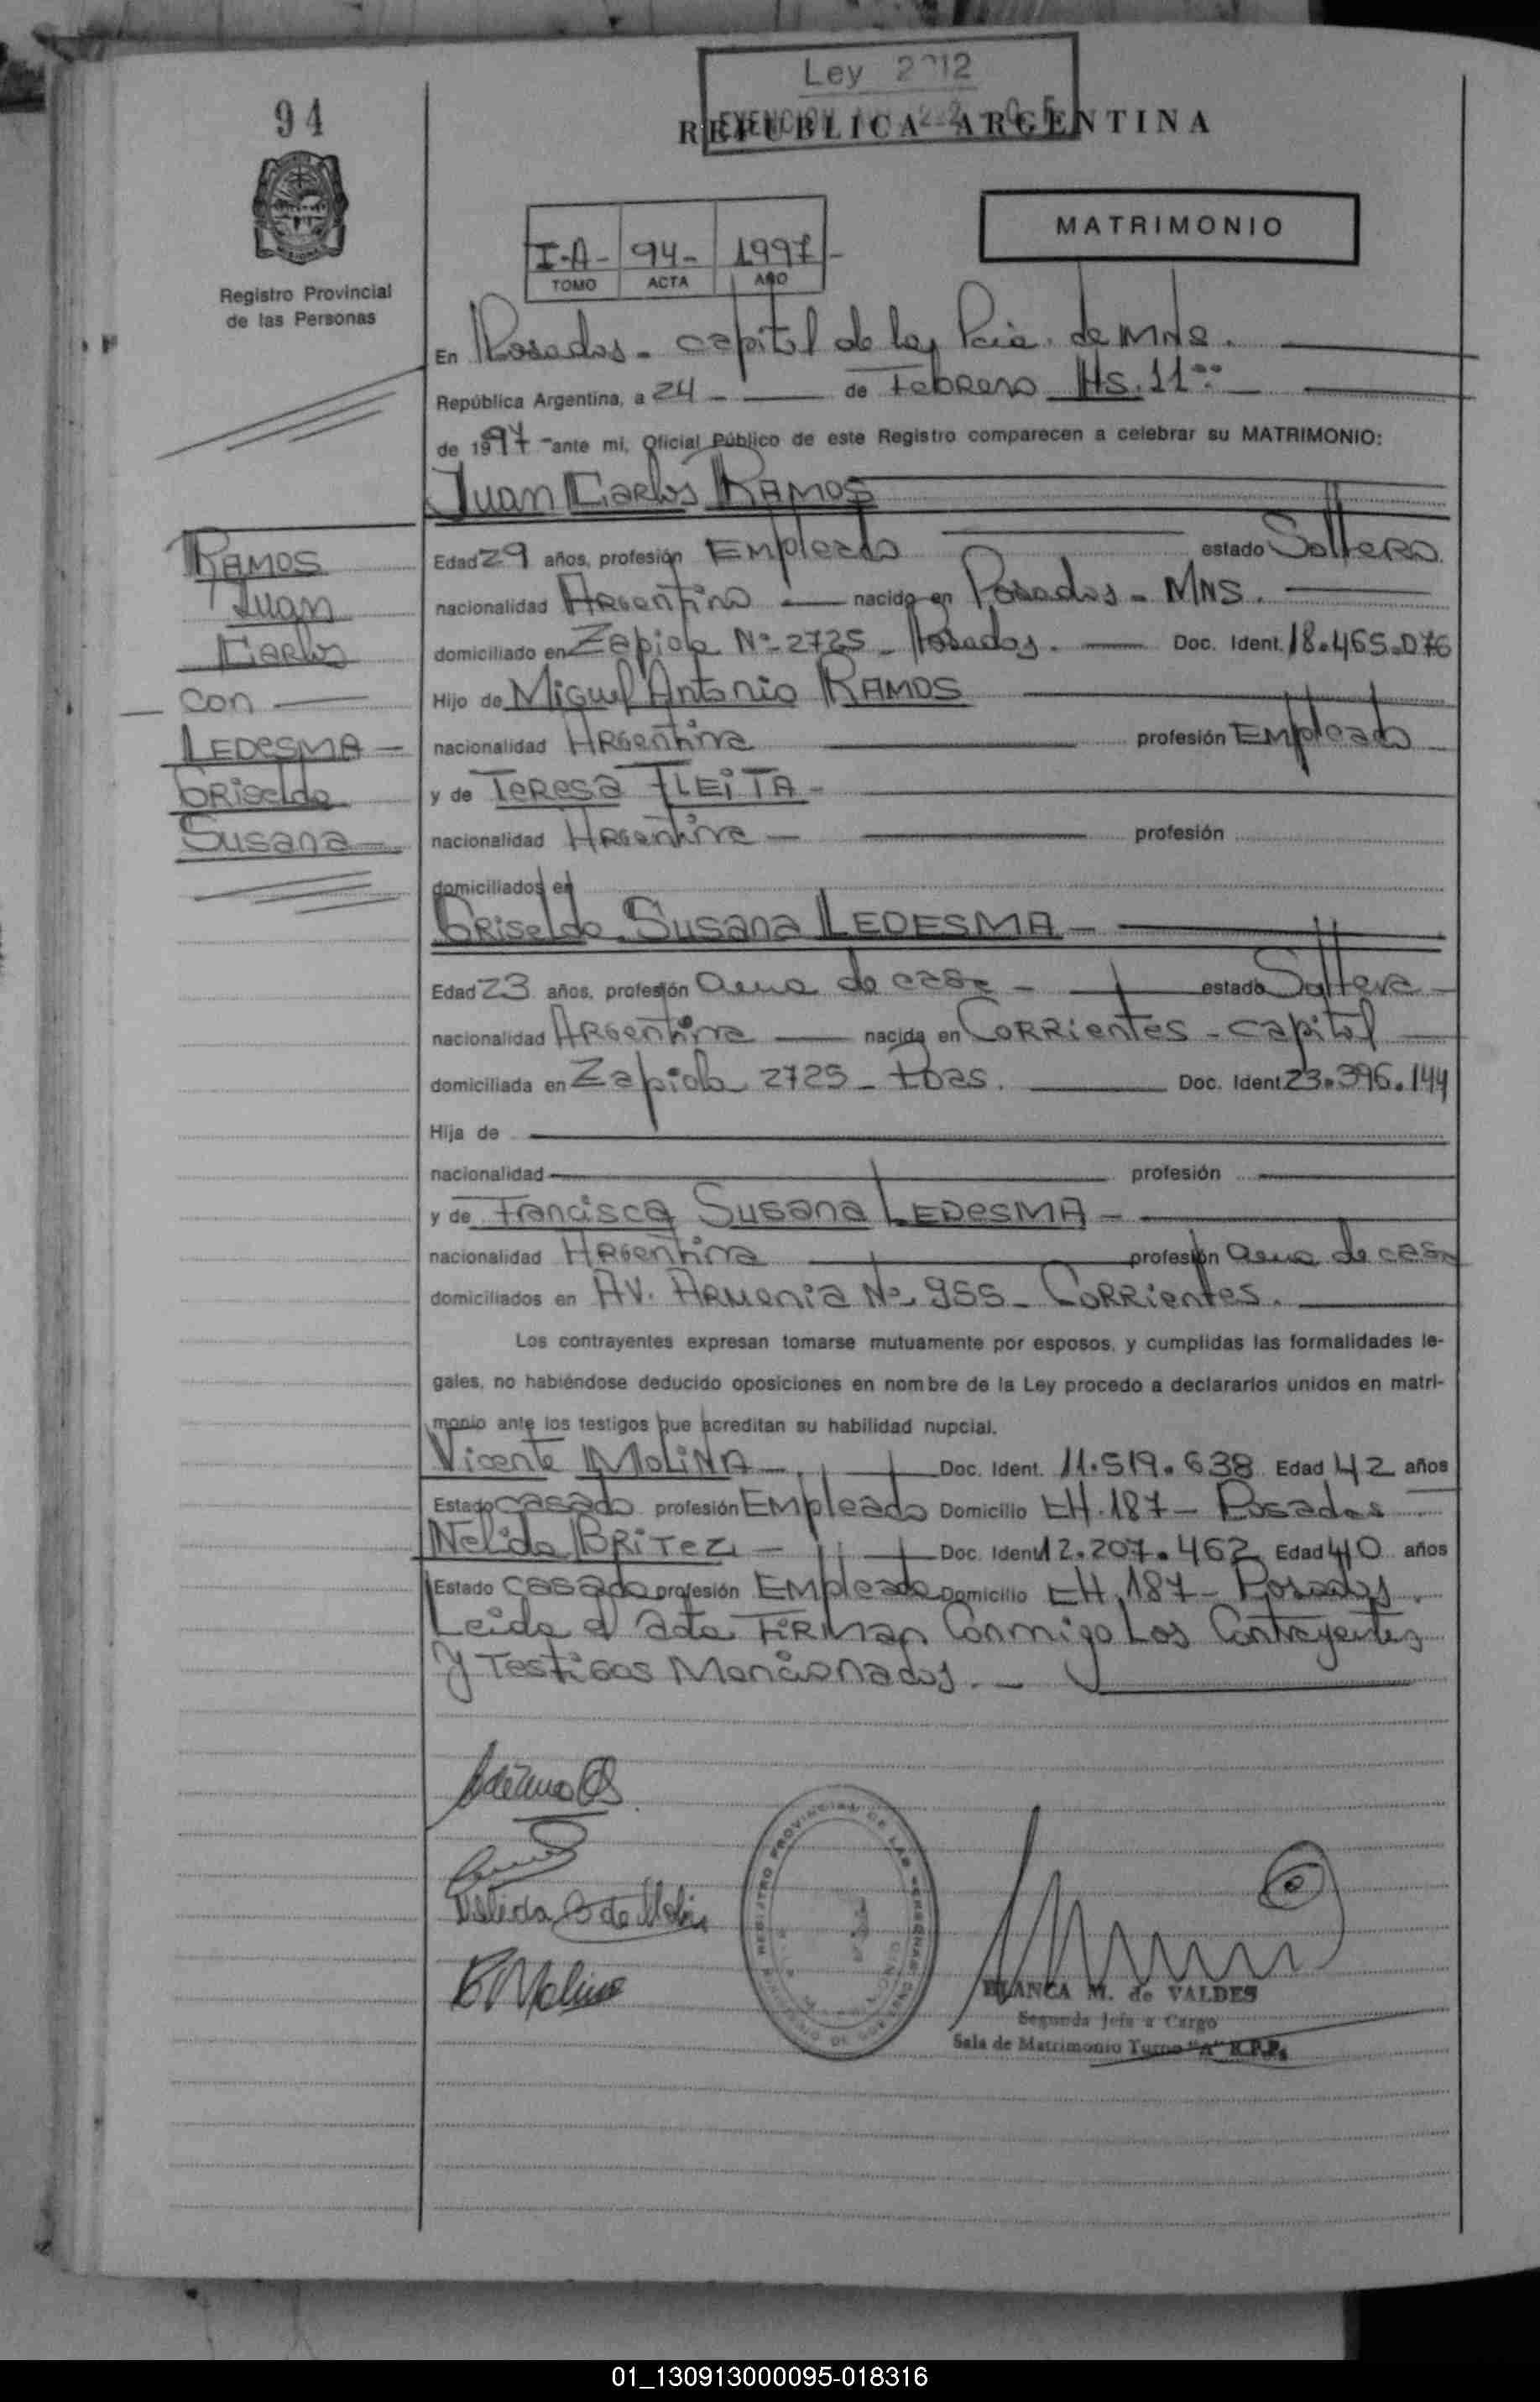 Ley 2212
94
REPUBLICA ARGENTINA
MATRIMONIO
I-A- 94- 1997-
TOMO ACTA AÑO
Registro Provincial
de las Personas
En Posadas - capital de la Pcia. de MNS.
República Argentina, a 24 - de Febrero Hs. 11
de 1997 - ante mi, Oficial Público de este Registro comparecen a celebrar su MATRIMONIO:
Juan Carlos RAMOS
RAMOS
Juan
Carlos
con
LEDESMA -
Griselda
Susana -
Edad 29 años, profesión Empleado estado Soltero.
nacionalidad Argentino nacido en Posadas - MNS.
domiciliado en Zapiola Nº 2725 - Posadas. Doc. Ident. 18.465.076
Hijo de Miguel Antonio RAMOS
nacionalidad Argentina profesión Empleado
y de Teresa FLEITA -
nacionalidad Argentina - profesión
domiciliados en
Griselda Susana LEDESMA -
Edad 23 años, profesión ama de casa - estado Soltera -
nacionalidad Argentina nacida en Corrientes - capital
domiciliada en Zapiola 2725 - Pdas. Doc. Ident. 23.396.144
Hija de
nacionalidad profesión
y de Francisca Susana LEDESMA -
nacionalidad Argentina profesión ama de casa
domiciliados en Av. Armenia Nº 955 - Corrientes.
Los contrayentes expresan tomarse mutuamente por esposos, y cumplidas las formalidades le-
gales, no habiéndose deducido oposiciones en nombre de la Ley procedo a declararlos unidos en matri-
monio ante los testigos que acreditan su habilidad nupcial.
Vicente MOLINA - Doc. Ident. 11.519.638 Edad 42 años
Estado casado profesión Empleado Domicilio CH. 187 - Posadas
Nelida BRITEZ - Doc. Ident. 12.207.462 Edad 40 años
Estado casada profesión Empleada Domicilio CH. 187 - Posadas.
Leida el acta Firman Conmigo Los Contrayentes
y Testigos Mencionados. -
Nelida B de Molina
Molina
BLANCA M. de VALDES
Segunda Jefa a Cargo
Sala de Matrimonio Turno "A" R.P.P.
REGISTRO PROVINCIAL DE LAS PERSONAS
01_130913000095-018316